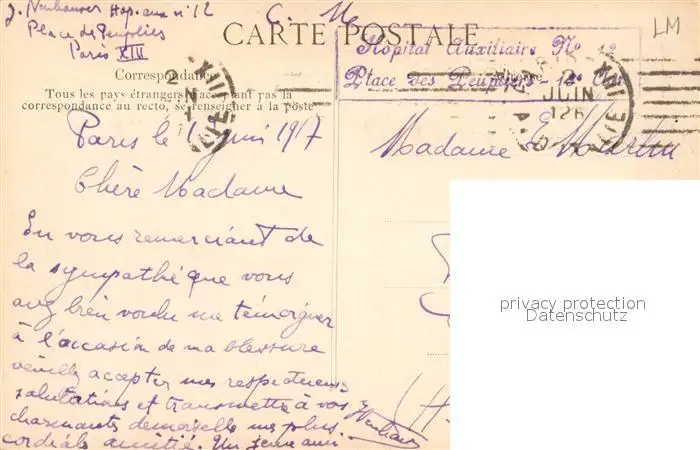 J. Neuhauser Hop. aux n° 12
Place de Peupliers
Paris XIII
C. M.
CARTE POSTALE
LM
Hôpital Auxiliaire No 12
Place des Peupliers
Correspondance
Tous les pays étrangers n'acceptant pas la
correspondance au recto, se renseigner à la poste
JUIN
Paris le 1 juin 1917
Madame
Chère Madame
En vous remerciant de
la sympathé que vous
avez bien voulu me témoigner
à l'accasion de ma blessure
veuillez accepter mes respectueus-
salutations et transmettre à vos
charmantes demoiselle mes plus
cordiale amitié. Un jeune ami
privacy protection
Datenschutz